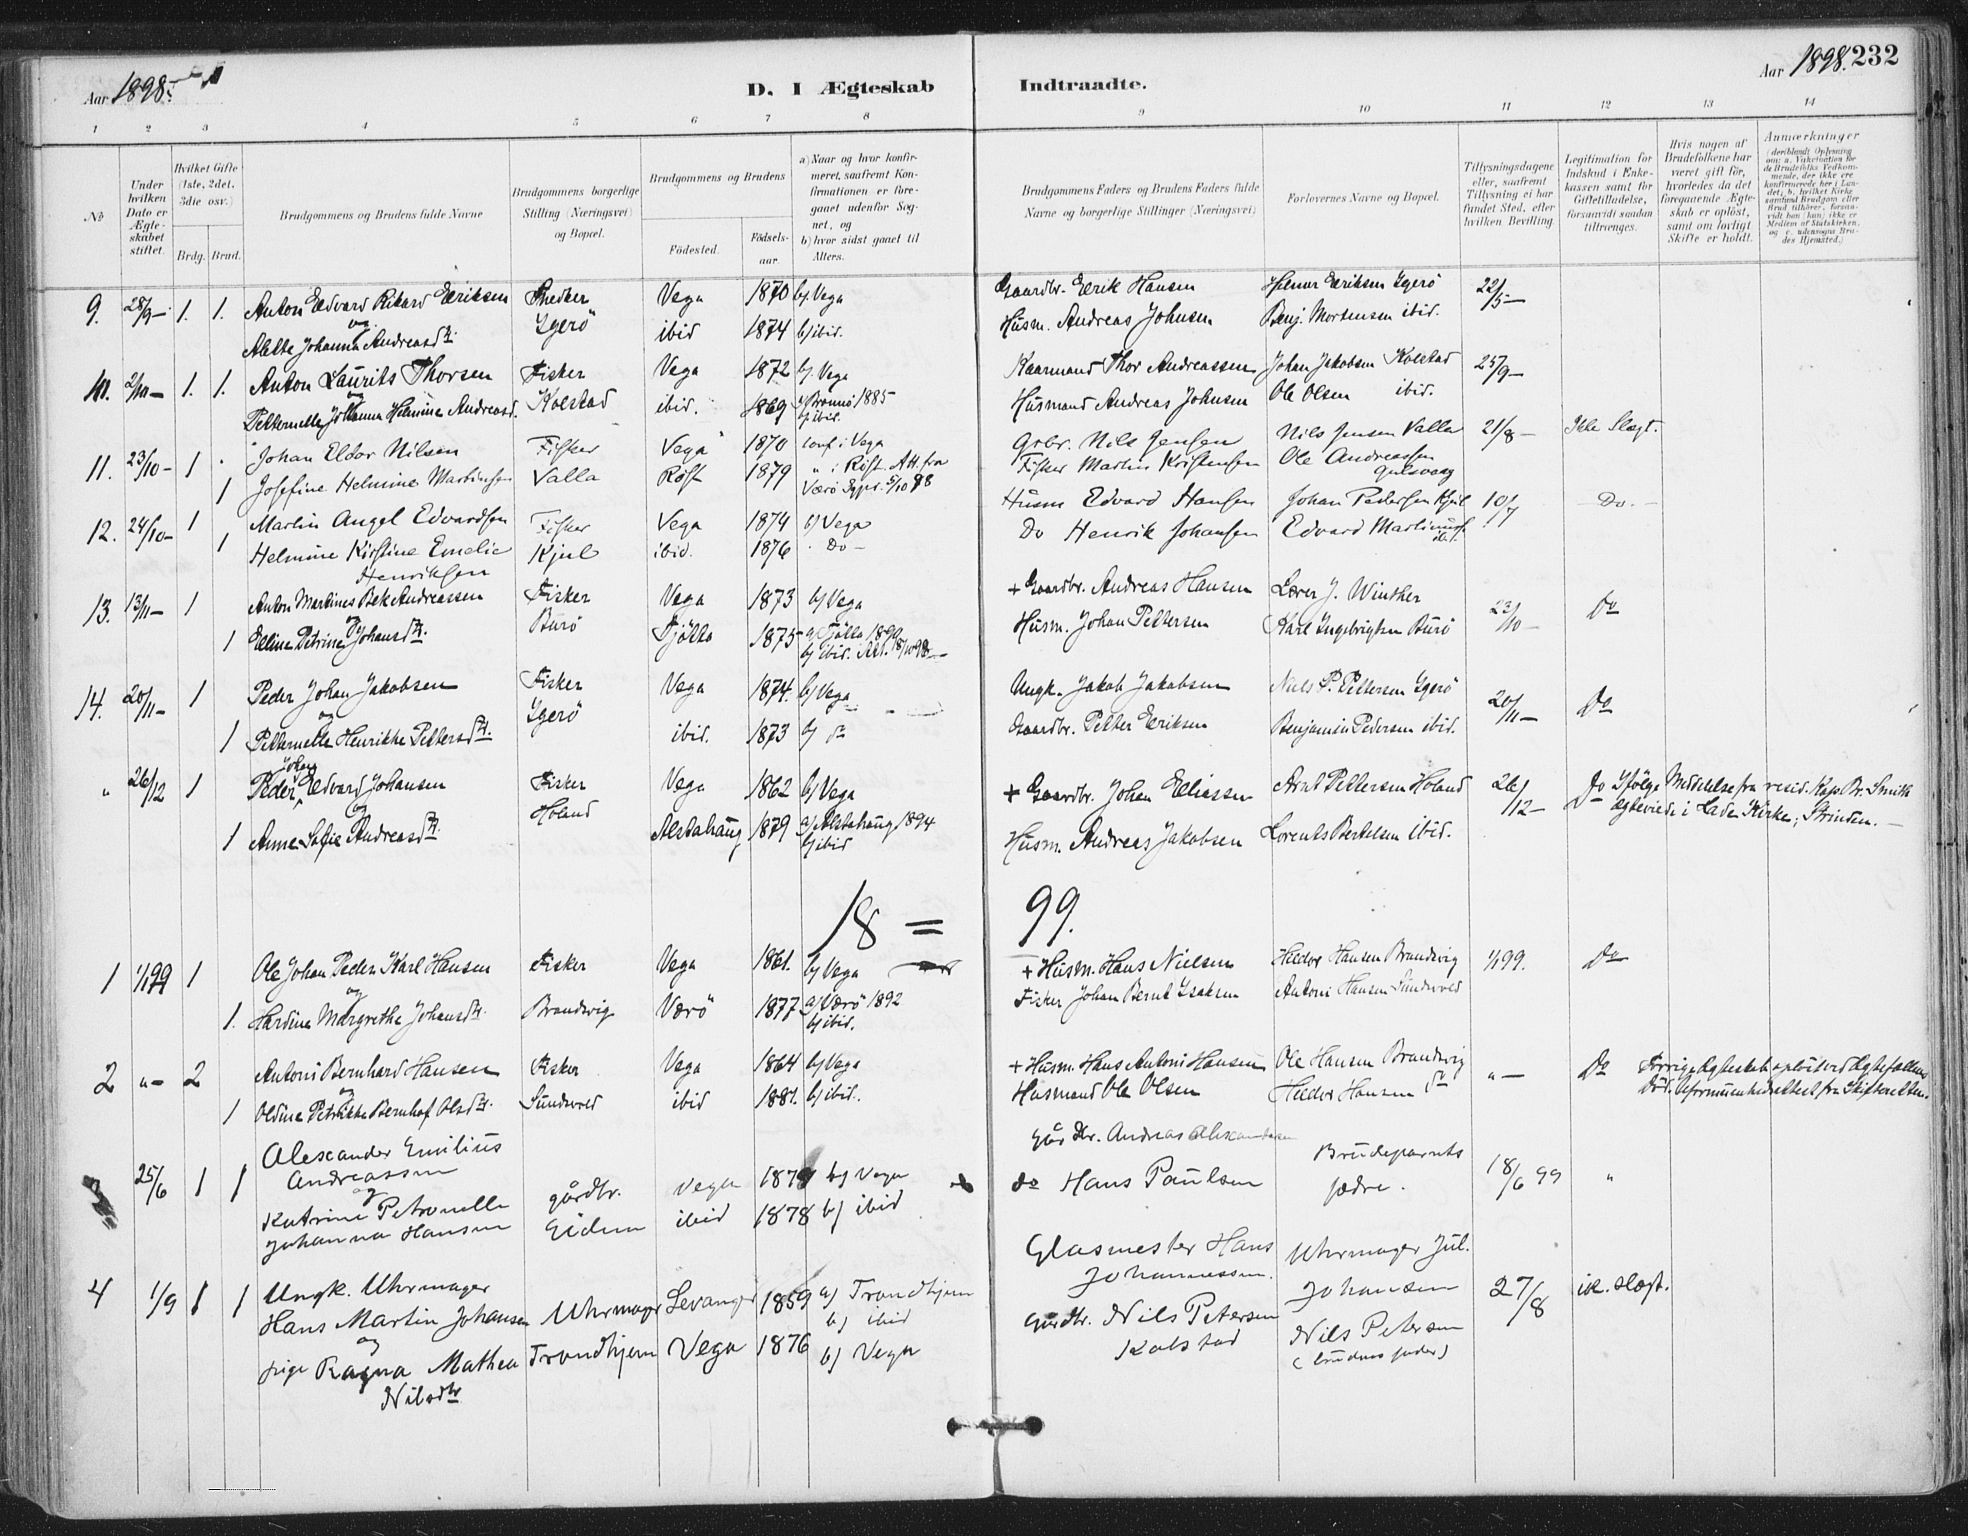 Aar 1898.
D. I Ægteskab Indtraadte.
Aar 1898. 232
1 2 3 4 5 6 7 8 9 10 11 12 13 14
No
Under hvilken Dato er Ægteskabet stiftet.
Hvilket Gifte (1ste, 2det, 3die osv.)
Brdg. Brud.
Brudgommens og Brudens fulde Navne
Brudgommens borgerlige Stilling (Næringsvei) og Bopæl.
Brudgommens og Brudens
Födested. Födselsaar.
a) Naar og hvor konfirmeret, saafremt Konfirmationen er foregaaet udenfor Sognet, og
b) hvor sidst gaaet til Alters.
Brudgommens Faders og Brudens Faders fulde Navne og borgerlige Stillinger (Næringsvei)
Forlovernes Navne og Bopæl.
Tillysningsdagene eller, saafremt Tillysning ei har fundet Sted, efter hvilken Bevilling
Legitimation for Indskud i Enkekassen samt for Giftetilladelse, forsaavidt saadan tiltrænges.
Hvis nogen af Brudefolkene har været gift før, hvorledes da det foregaaende Ægteskab er oplöst, samt om lovligt Skifte er holdt.
Anmærkninger (deriblandt Oplysning om: a. Vakcination for de Brudefolks Vedkommende, der ikke ere konfirmerede her i Landet; b. hvilket Kirkesamfund Brudgom eller Brud tilhörer, forsaavidt han (hun) ikke er Medlem af Statskirken, og c. udensogns Brudes Hjemsted.)
9. 28/9 1. 1. Anton Edvard Rikard Eriksen Snedker Vega 1870 b/ Vega Gaardbr. Erik Hansen Hilmar Eriksen Ygerö 22/5
og Alette Johanna Andreasd. Ygerö ibid 1874 b/ ibid. Husm. Andreas Johnsen Benj. Mortensen ibid.
10. 2/10 1. 1. Anton Laurits Thorsen Fisker Vega 1872 b/ Vega Kaarmand Thor Andreassen Johan Jakobsen Kolstad 25/9
og Petternelle Johanna Helmine Andreasd. Kolstad ibid. 1869 a/ Brönnö 1885 b/ ibid. Husmand Andreas Johnsen Ole Olsen ibid.
11. 23/10 1 Johan Eldor Nilsen Fisker Vega 1870 conf. i Vega Grbr. Nils Jensen Nils Jensen Valla 21/8 Ikke Slægt.
1 Josefine Helmine Martinsen Valla Röst 1879 " i Röst. Att. fra Værö Sgpr. 5/10 98 Fisker Martin Kristensen Ole Andreassen Gulsvaag
12. 24/10 1 Martin Angel Edvardsen Fisker Vega 1874 b/ Vega Husm Edvard Hansen Johan Pedersen Kjul 10/7 Do.
1 Helmine Kirstine Emelie Henriksen Kjul ibid. 1876 Do Do Henrik Johansen Edvard Martinussen ibid.
13. 13/11 1 Anton Martines Bek Andreassen Fisker Vega 1873 b/ Vega + Gaardbr. Andreas Hansen Lærer J. Winther 23/10 Do
1 og Elline Petrine Johansd. Burö Tjötta 1875 a/ Tjötta 1890 b/ ibid. Att. 18/10 98 Husm. Johan Pettersen Karl Ingebrigtsen Burö
14. 20/11 1 Peder Johan Jakobsen Fisker Vega 1874. b/ Vega Ungk. Jakob Jakobsen Niels P. Pettersen Ygerö 20/11 Do
1 og Petternelle Henrikke Pettersd. Ygerö ibid. 1873 b/ do Gaardbr. Petter Eriksen Benjamin Pedersen ibid.
" 26/12 1 Peder Johan Edvard Johansen Fisker Vega 1862 b/ Vega + Gaardbr. Johan Eliassen Arnt Pettersen Holand 26/12 Do Ifölge Meddelelse fra resid. Kap. Br. Smith
1 og Anne Sofie Andreasd. Holand Alstahaug 1879 a/ Alstahaug 1894 b/ ibid Husm. Andreas Jakobsen Lorents Bertelsen ibid. ægteviede i Lade Kirke, Strinden.
18 = 99.
1 1/1 99 1 Ole Johan Peder Karl Hansen Fisker Vega 1861. b/ Vega + Husm. Hans Nielsen Heldor Hansen Brandsvig 1/1 99. Do
1. og Hardine Margrethe Johansd. Brandsvig Værö 1877 a/ Værö 1892 b/ ibid. Fisker Johan Bernt Isaksen Antoni Hansen Sundsvold
2 " 2 Antoni Bernhard Hansen Fisker Vega 1864 b/ Vega + Husm. Hans Antoni Hansen Ole Hansen Brandsvig " Do Forrige Ægteskab oplöst ved Ægtefællens
1 og Oldine Petrikke Bernhof Olsd. Sundsvold ibid 1881. b/ ibid. Husmand Ole Olsen Heldor Hansen do Död. Uformuenhedsattest fra Skifteretten.
3 25/6 1 1 Alexander Emilius Andreassen gårdbr. Vega 1879 b/ Vega Går dbr. Andreas Alexandersen Brudeparrets fædre. 18/6 99 "
og Katrine Petronelle Johanna Hansen Eidem ibid 1878 b/ ibid do Hans Paulsen
4 1/9 1 1 Ungk. Uhrmager Hans Martin Johansen Uhrmager Levanger 1859 a/ Trondhjem b/ ibid Glasmester Hans Johannessen. Uhrmager Jul. Johansen 27/8 ik. slægt.
og pige Ragna Mathea Nilsdtr Trondhjem Vega 1876 b/ Vega Gårdbr. Nils Petersen Kolstad Nils Petersen (brudens fader)